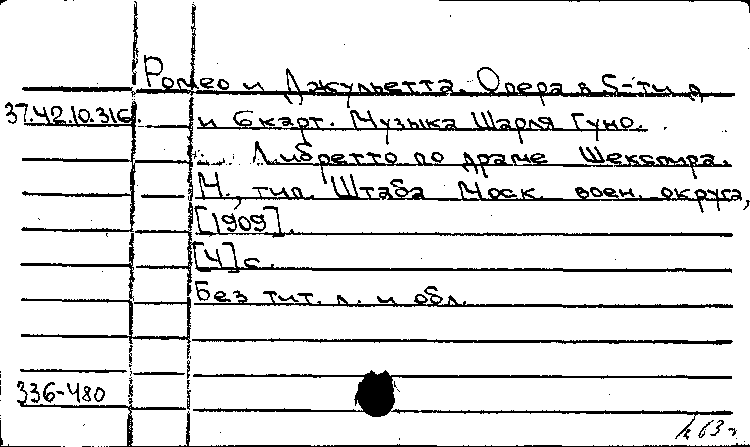 Ромео и Джульетта. Опера в 5-ти д.
37.42.10.316. и 6 карт. Музыка Шарля Гуно.
Либретто по драме Шекспира.
М., тип. Штаба Моск. воен. округа,
[1909].
[4] с.
Без тит. л. и обл.
336-480
63 г